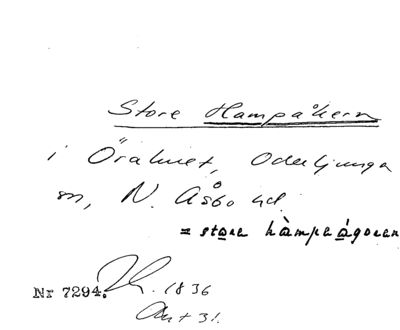 Store Hampåkern
i Örahult, Oderljunga
sn, N. Åsbo hd.
= store hàmpaágoren
Nr 7294. 1836
Akt 31.